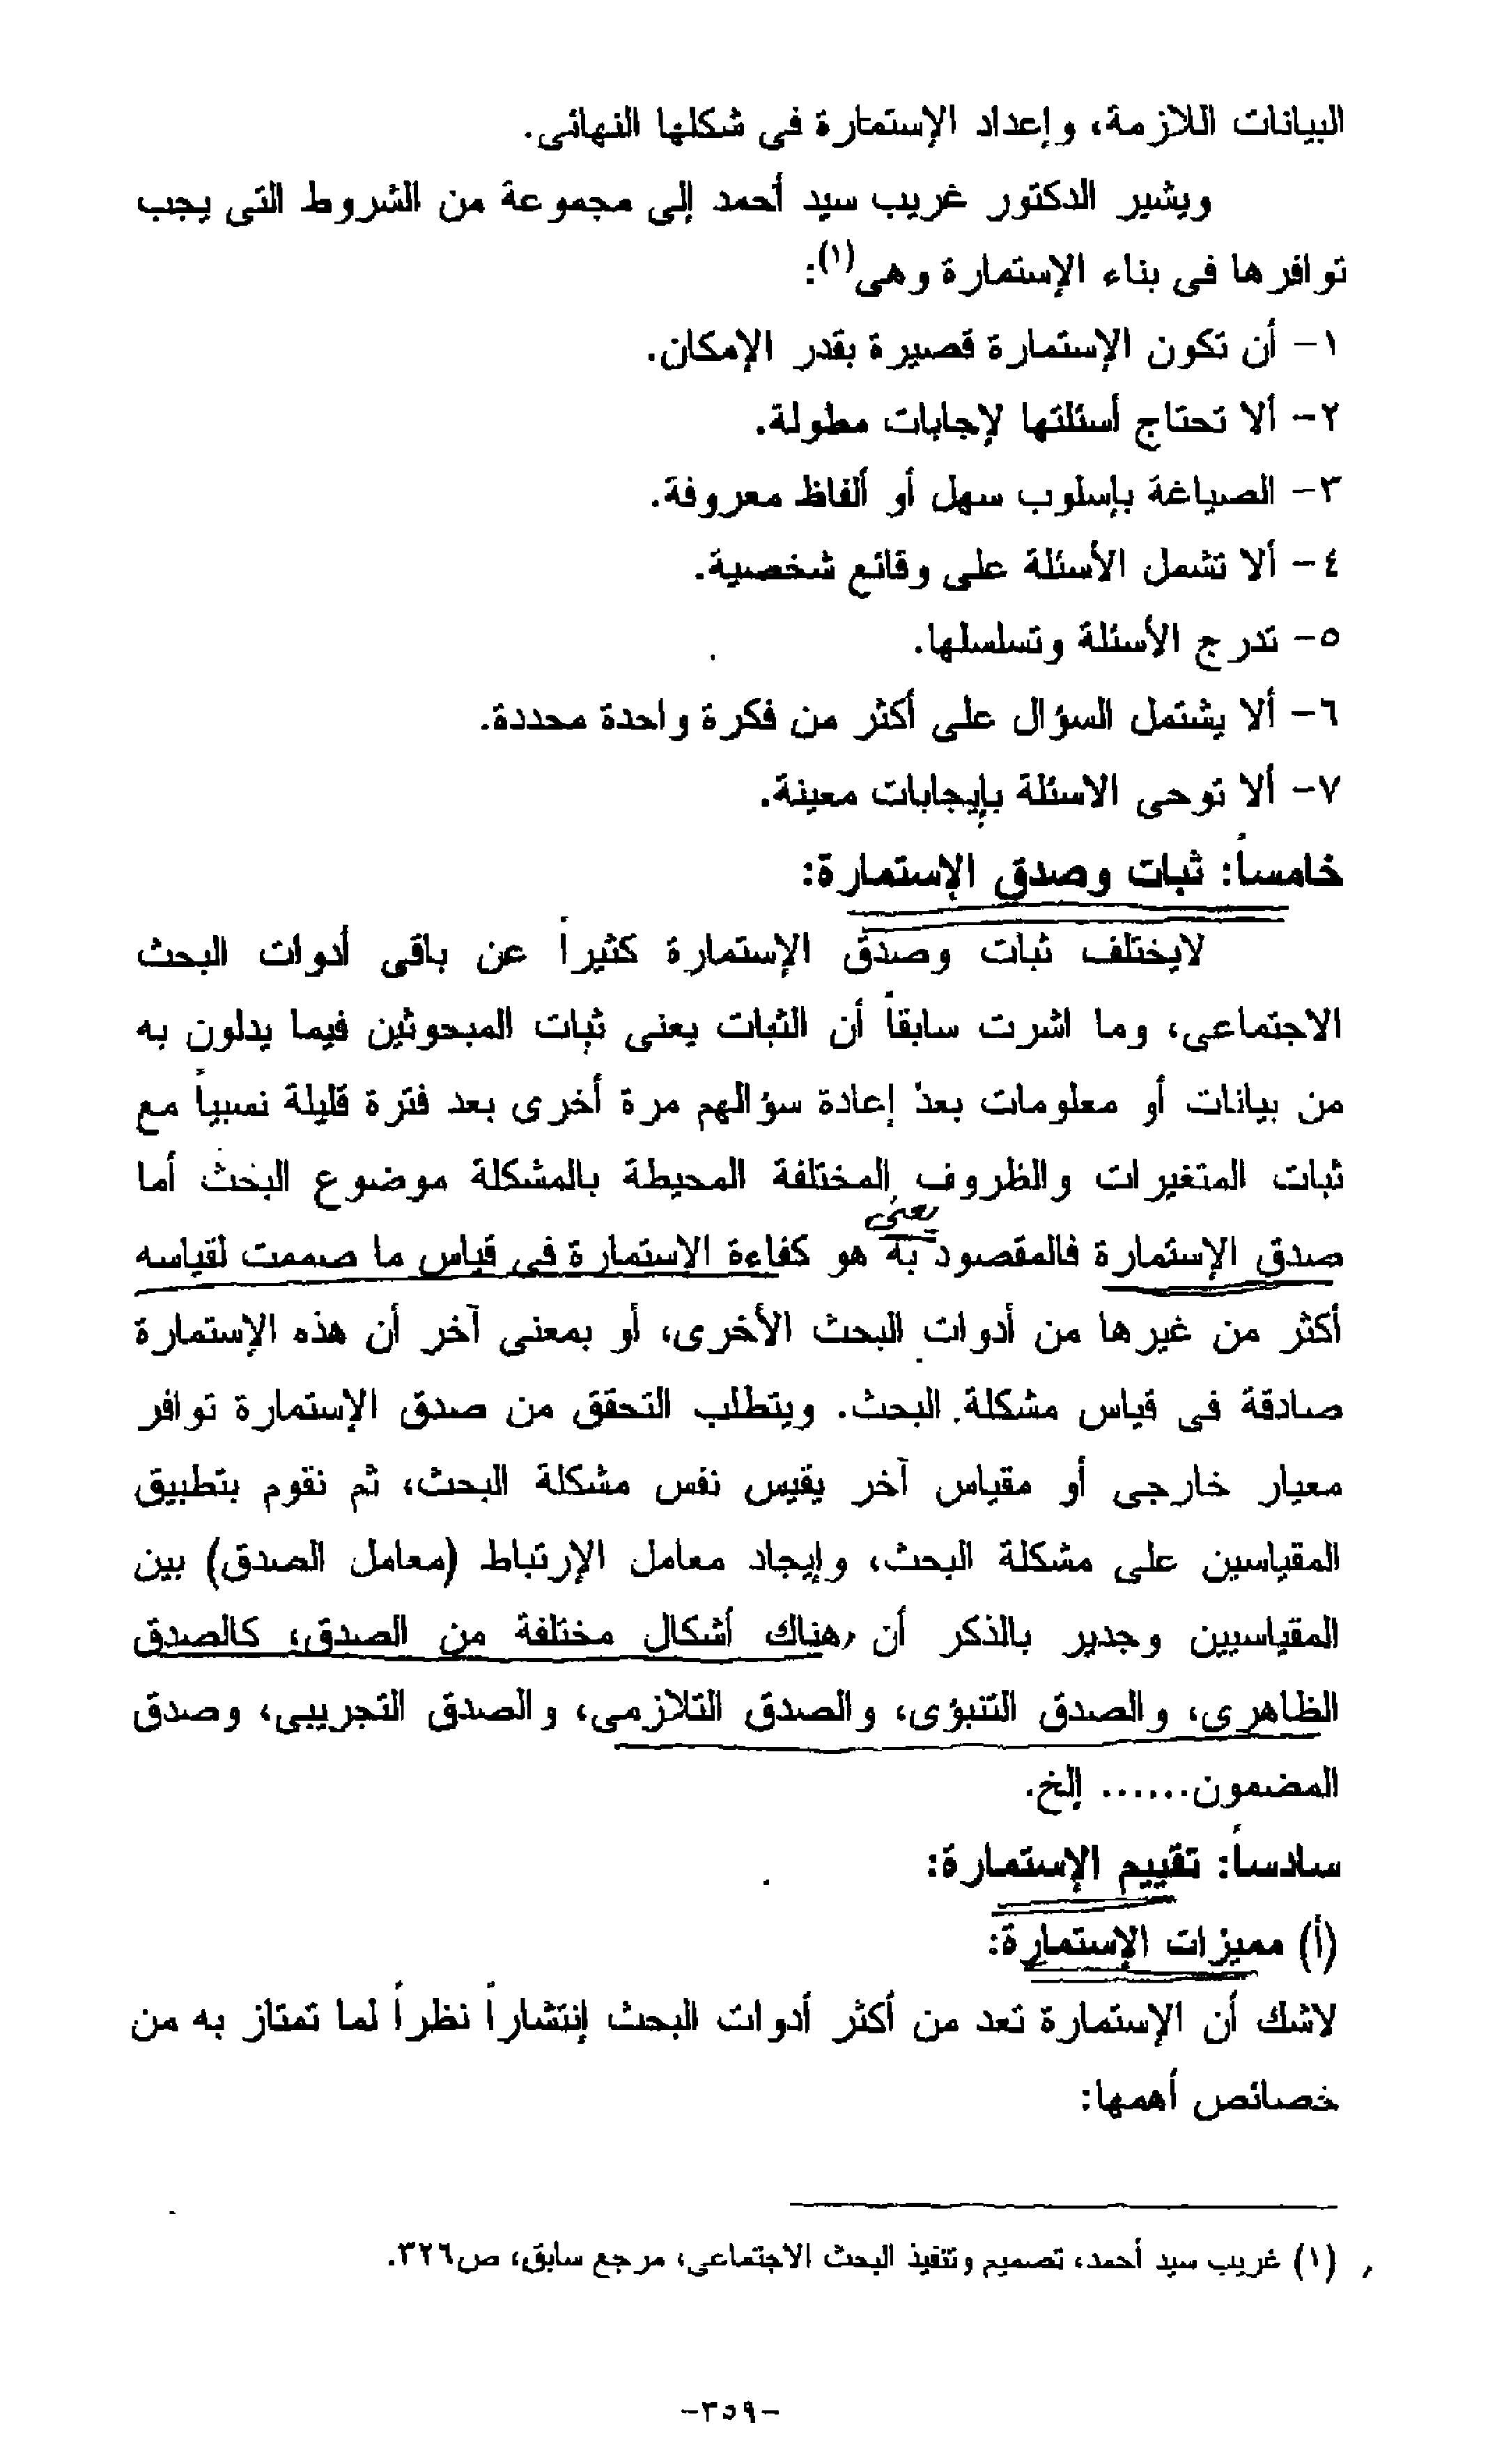 البيانات اللازمة، وإعداد الإستمارة فى شكلها النهائى.
ويشير الدكتور غريب سيد أحمد إلى مجموعة من الشروط التى يجب
توافرها فى بناء الإستمارة وهى(١):
١- أن تكون الإستمارة قصيرة بقدر الإمكان.
٢- ألا تحتاج أسئلتها لإجابات مطولة.
٣- الصياغة بإسلوب سهل أو ألفاظ معروفة.
٤- ألا تشمل الأسئلة على وقائع شخصية.
٥- تدرج الأسئلة وتسلسلها.
٦- ألا يشتمل السؤال على أكثر من فكرة واحدة محددة.
٧- ألا توحى الاسئلة بإيجابات معينة.
خامساً: ثبات وصدق الإستمارة:
لايختلف ثبات وصدق الإستمارة كثيراً عن باقى أدوات البحث
الاجتماعى، وما اشرت سابقاً أن الثبات يعنى ثبات المبحوثين فيما يدلون به
من بيانات أو معلومات بعد إعادة سؤالهم مرة أخرى بعد فترة قليلة نسبياً مع
ثبات المتغيرات والظروف المختلفة المحيطة بالمشكلة موضوع البحث أما
يعنى
صدق الإستمارة فالمقصود به هو كفاءة الإستمارة فى قياس ما صممت لقياسه
أكثر من غيرها من أدوات البحث الأخرى، أو بمعنى آخر أن هذه الإستمارة
صادقة فى قياس مشكلة البحث. ويتطلب التحقق من صدق الإستمارة توافر
معيار خارجى أو مقياس آخر يقيس نفس مشكلة البحث، ثم نقوم بتطبيق
المقياسين على مشكلة البحث، وإيجاد معامل الإرتباط (معامل الصدق) بين
المقياسيين وجدير بالذكر أن هناك أشكال مختلفة من الصدق، كالصدق
الظاهرى، والصدق التنبؤى، والصدق التلازمى، والصدق التجريبى، وصدق
المضمون...... إلخ.
سادساً: تقييم الإستمارة:
(أ) مميزات الإستمارة:
لاشك أن الإستمارة تعد من أكثر أدوات البحث إنتشاراً نظراً لما تمتاز به من
خصائص أهمها:
(١) غريب سيد أحمد، تصميم وتنفيذ البحث الاجتماعى، مرجع سابق، ص٣٢٦.
-٣٥٩-